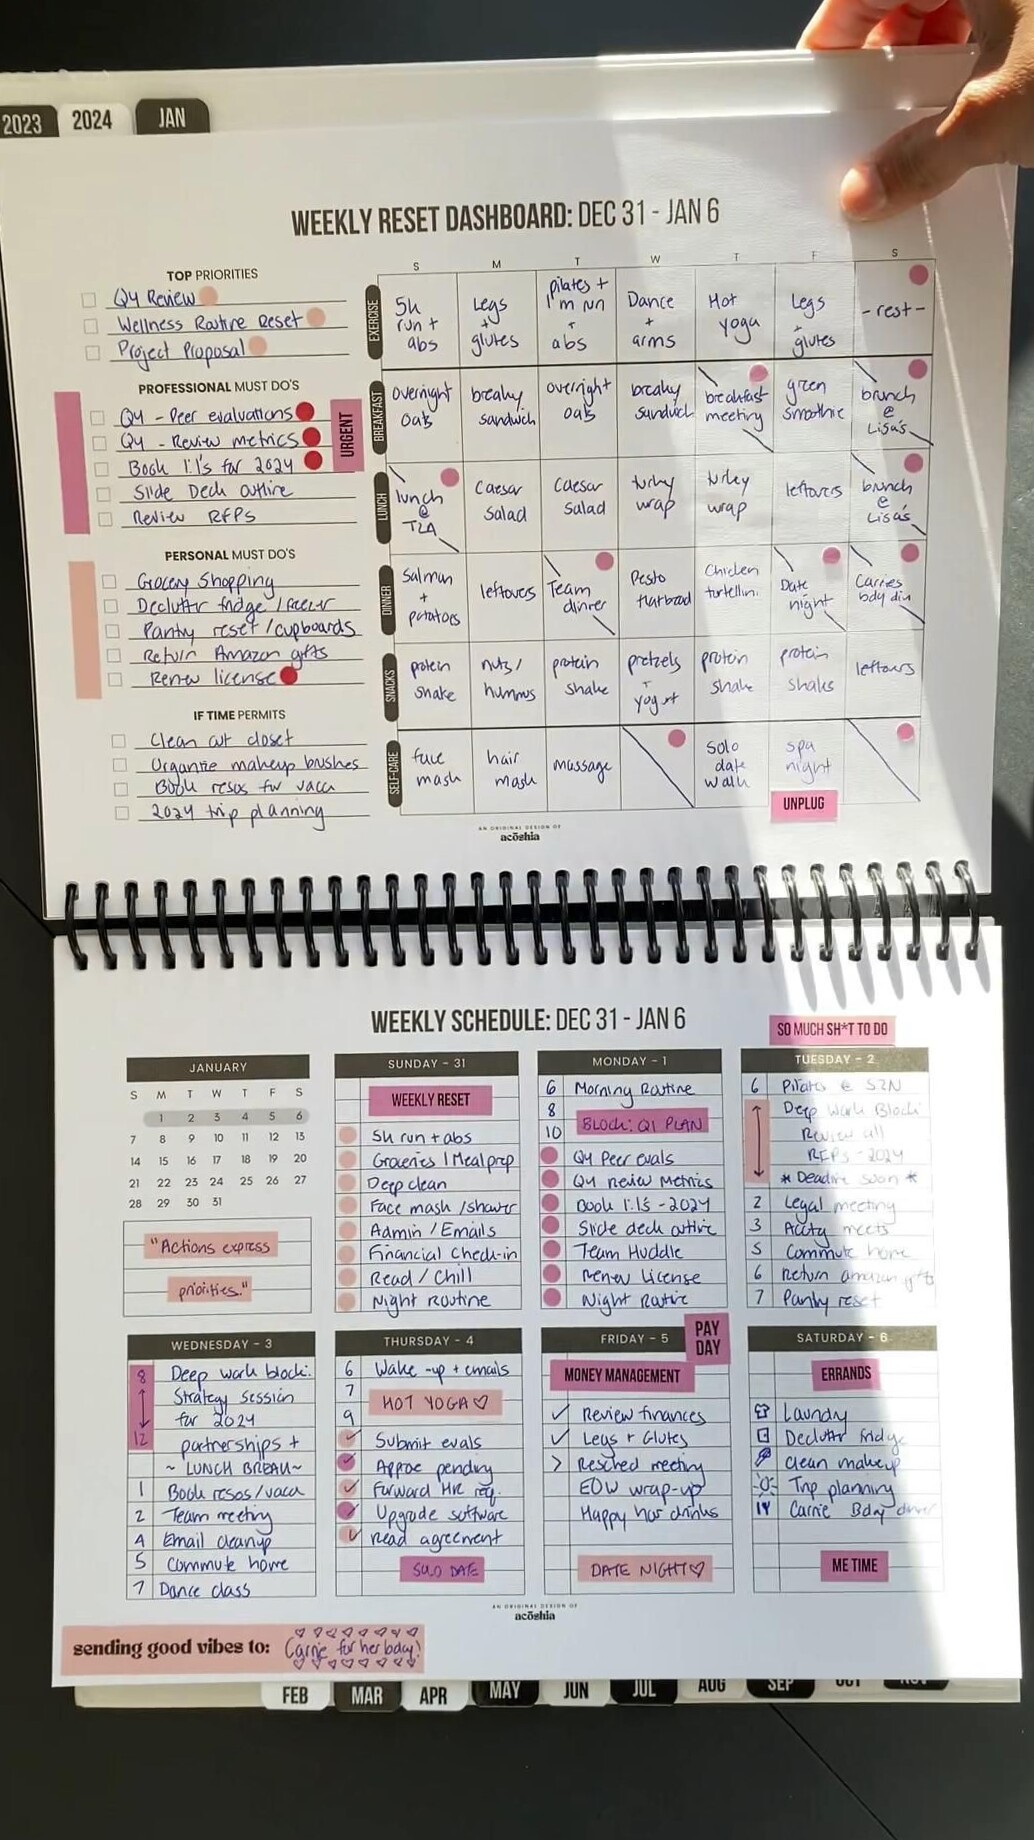 2023
2024
JAN
WEEKLY RESET DASHBOARD: DEC 31 - JAN 6
TOP PRIORITIES
Q4 Review
Wellness Routine Reset
Project Proposal
PROFESSIONAL MUST DO'S
Q4 - Peer evaluations
Q4 - Review metrics
Book 1:1's for 2024
Slide Deck outline
Review RFPS
URGENT
PERSONAL MUST DO'S
Grocery Shopping
Declutter fridge / freezer
Pantry reset / cupboards
Return Amazon gifts
Renew license
IF TIME PERMITS
Clean out closet
Organize makeup brushes
Book resos for vaca
2024 trip planning
S M T W T F S
EXERCISE
5k
run +
abs
Legs
+
glutes
pilates +
1'm run
+
abs
Dance
+
arms
Hot
yoga
Legs
+
glutes
- rest -
BREAKFAST
overnight
oats
breaky
sandwich
overnight
oats
breaky
sandwich
breakfast
meeting
green
smoothie
brunch
@
Lisa's
LUNCH
lunch
@
T2A
caesar
salad
caesar
salad
turkey
wrap
turkey
wrap
leftovers
brunch
@
Lisa's
DINNER
Salmon
+
potatoes
leftovers
Team
dinner
Pesto
flatbread
Chicken
tortellini
Date
night
Carries
bday din
SNACKS
protein
shake
nuts /
hummus
protein
shake
pretzels
+
yogurt
protein
shake
protein
shake
leftovers
SELF-CARE
face
mask
hair
mask
massage
solo
date
walk
spa
night
UNPLUG
AN ORIGINAL DESIGN OF
acōshia
WEEKLY SCHEDULE: DEC 31 - JAN 6
SO MUCH SH*T TO DO
JANUARY
S M T W T F S
1 2 3 4 5 6
7 8 9 10 11 12 13
14 15 16 17 18 19 20
21 22 23 24 25 26 27
28 29 30 31
"Actions express
priorities."
SUNDAY - 31
WEEKLY RESET
5k run + abs
Groceries / Meal prep
Deep clean
Face mask / shower
Admin / Emails
Financial check-in
Read / Chill
Night Routine
MONDAY - 1
6 Morning Routine
8
BLOCK: Q1 PLAN
10
Q4 Peer evals
Q4 Review Metrics
Book 1:1's - 2024
Slide deck outline
Team Huddle
Renew License
Night Routine
TUESDAY - 2
6 Pilates @ SZN
Deep Work Block:
Review all
RFPS - 2024
* Deadline soon *
2 Legal meeting
3 Acctg meets
5 Commute home
6 Return amazon gifts
7 Pantry reset
WEDNESDAY - 3
8 Deep work block:
Strategy session
for 2024
12 partnerships +
~ LUNCH BREAK ~
1 Book resos / vaca
2 Team meeting
4 Email cleanup
5 Commute home
7 Dance class
THURSDAY - 4
6 Wake-up + emails
7
HOT YOGA ♡
9
Submit evals
Approve pending
Forward HR req.
Upgrade software
Read agreement
SOLO DATE
FRIDAY - 5
PAY
DAY
MONEY MANAGEMENT
✓ Review finances
✓ Legs + Glutes
> Resched meeting
EOW wrap-up
Happy hour drinks
DATE NIGHT ♡
SATURDAY - 6
ERRANDS
Laundry
Declutter fridge
Clean makeup
Trip planning
Carrie Bday dinner
ME TIME
AN ORIGINAL DESIGN OF
acōshia
sending good vibes to: Carrie for her bday!
FEB MAR APR MAY JUN JUL AUG SEP OCT NOV